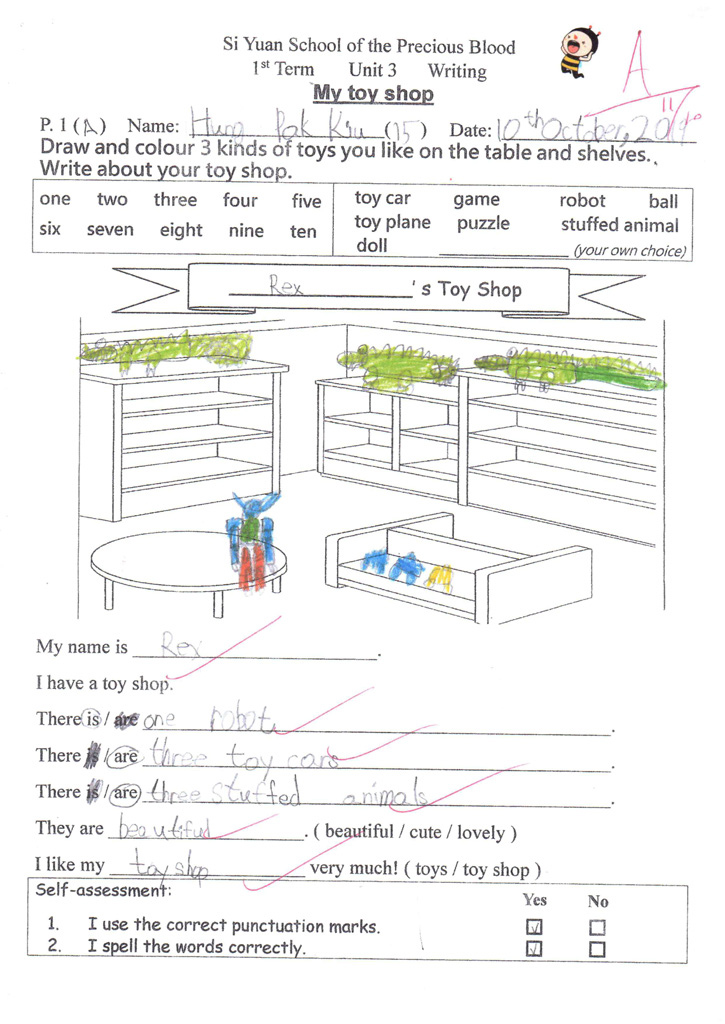 Si Yuan School of the Precious Blood
1st Term Unit 3 Writing
My toy shop
A
P. 1 (A) Name: Hung Pak Kiu (15) Date: 10th October, 2019
Draw and colour 3 kinds of toys you like on the table and shelves.
Write about your toy shop.
one two three four five
six seven eight nine ten
toy car game robot ball
toy plane puzzle stuffed animal
doll (your own choice)
Rex 's Toy Shop
My name is Rex.
I have a toy shop.
There is / are one robot.
There is / are three toy cars.
There is / are three stuffed animals.
They are beautiful. ( beautiful / cute / lovely )
I like my toy shop very much! ( toys / toy shop )
Self-assessment:
Yes No
1. I use the correct punctuation marks.
2. I spell the words correctly.